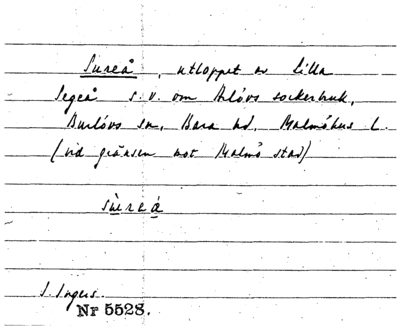 Sureå, utloppet av Lilla
Segeå s.v. om Arlövs sockerbruk,
Burlövs sn, Bara hd, Malmöhus L.
(vid gränsen mot Malmö stad)
sùreá
I. Ingers.
Nr 5528.